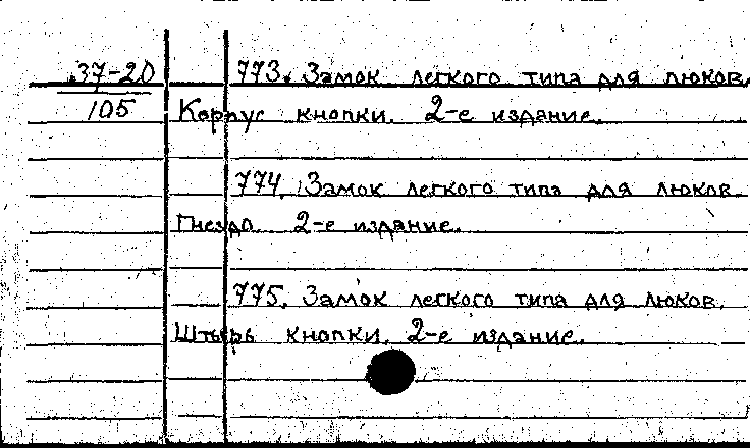 37-20
105
773. Замок легкого типа для люков.
Корпус кнопки. 2-е издание.
774. Замок легкого типа для люков.
Гнездо. 2-е издание.
775. Замок легкого типа для люков.
Штырь кнопки. 2-е издание.